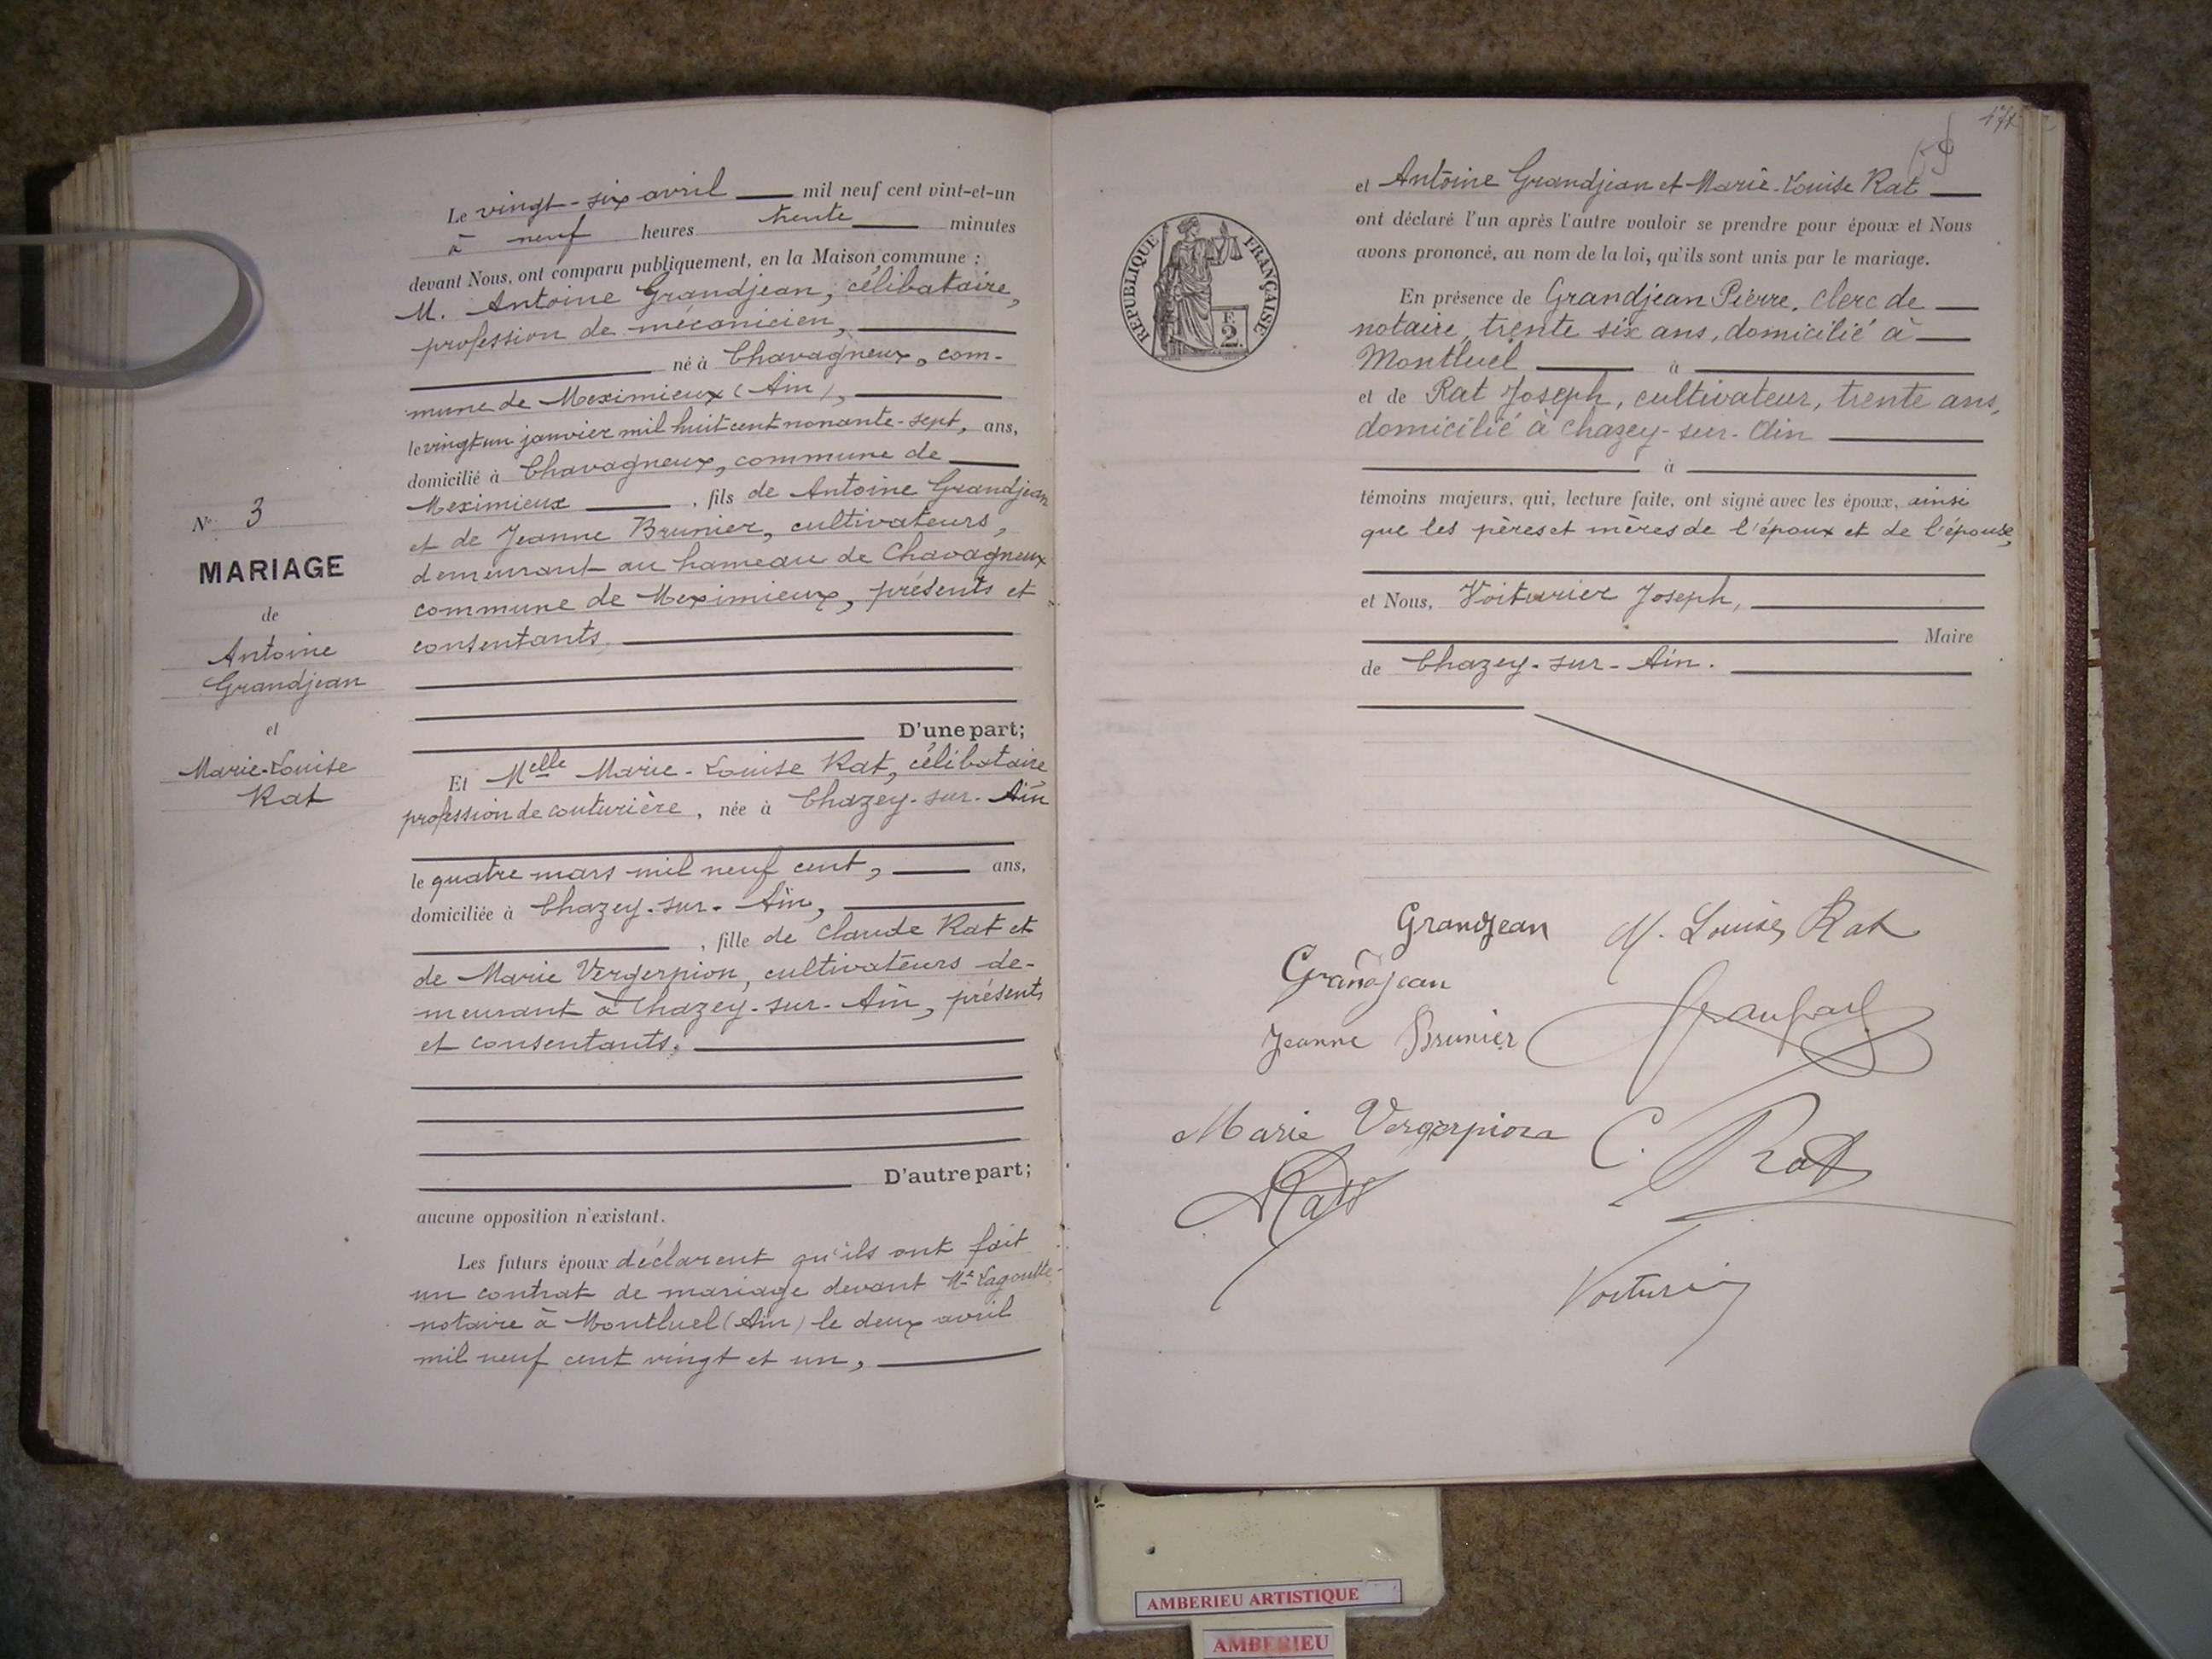 Le vingt-six avril mil neuf cent vint-et-un
à neuf heures trente minutes
devant Nous, ont comparu publiquement, en la Maison commune :
M. Antoine Grandjean, célibataire,
profession de mécanicien,
né à Chavagneux, com-
mune de Meximieux (Ain),
le vingt un janvier mil huit cent nonante-sept, ans,
domicilié à Chavagneux, commune de
Meximieux , fils de Antoine Grandjean
et de Jeanne Brunier, cultivateurs,
demeurant au hameau de Chavagneux
commune de Meximieux, présents et
consentants,
D'une part;
N° 3
MARIAGE
de
Antoine
Grandjean
et
Marie-Louise
Rat
Et Melle Marie-Louise Rat, célibataire
profession de couturière, née à Chazey-sur-Ain
le quatre mars mil neuf cent, ans,
domiciliée à Chazey-sur-Ain,
, fille de Claude Rat et
de Marie Vergerpion, cultivateurs de-
meurant à Chazey-sur-Ain, présents
et consentants.
D'autre part;
aucune opposition n'existant.
Les futurs époux déclarent qu'ils ont fait
un contrat de mariage devant Me Lagoutte
notaire à Montluel (Ain) le deux avril
mil neuf cent vingt et un,
59
RÉPUBLIQUE FRANÇAISE
F.
2.
et Antoine Grandjean et Marie-Louise Rat
ont déclaré l'un après l'autre vouloir se prendre pour époux et Nous
avons prononcé, au nom de la loi, qu'ils sont unis par le mariage.
En présence de Grandjean Pierre, clerc de
notaire, trente six ans, domicilié à
Montluel à
et de Rat Joseph, cultivateur, trente ans,
domicilié à Chazey-sur-Ain
à
témoins majeurs, qui, lecture faite, ont signé avec les époux, ainsi
que les pères et mères de l'époux et de l'épouse,
et Nous, Voiturier Joseph,
Maire
de Chazey-sur-Ain.
Grandjean M. Louise Rat
Grandjean
Jeanne Brunier
Marie Vergerpion C. Rat
Rat
Voiturier
AMBERIEU ARTISTIQUE
AMBERIEU